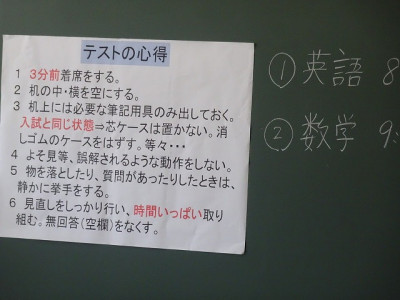 テストの心得
1 3分前着席をする。
2 机の中・横を空にする。
3 机上には必要な筆記用具のみ出しておく。
入試と同じ状態⇒芯ケースは置かない。消
しゴムのケースをはずす。等々・・・
4 よそ見等、誤解されるような動作をしない。
5 物を落としたり、質問があったりしたときは、
静かに挙手をする。
6 見直しをしっかり行い、時間いっぱい取り
組む。無回答(空欄)をなくす。
① 英語 8
② 数学 9: